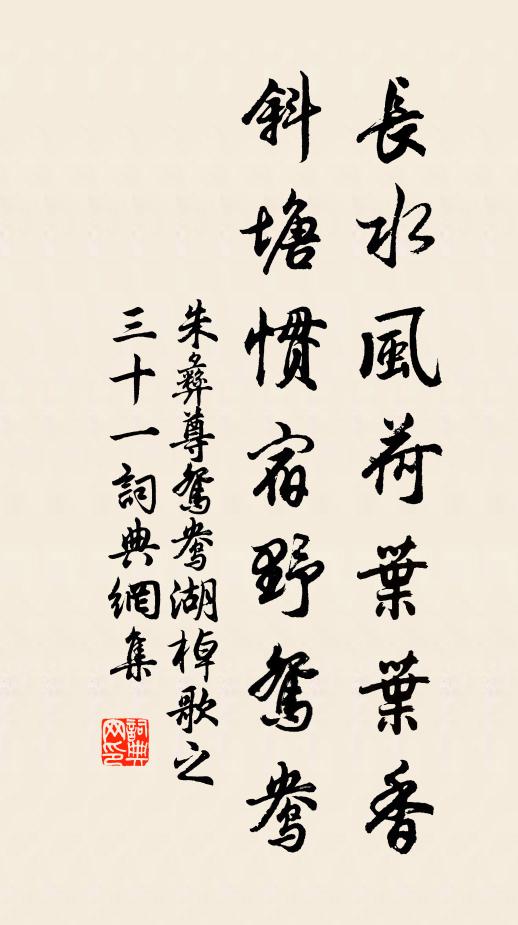 長水風荷葉葉香
斜塘慣宿野鴛鴦
朱彝尊鴛鴦湖棹歌之
三十一詞典網集
詞典
网印